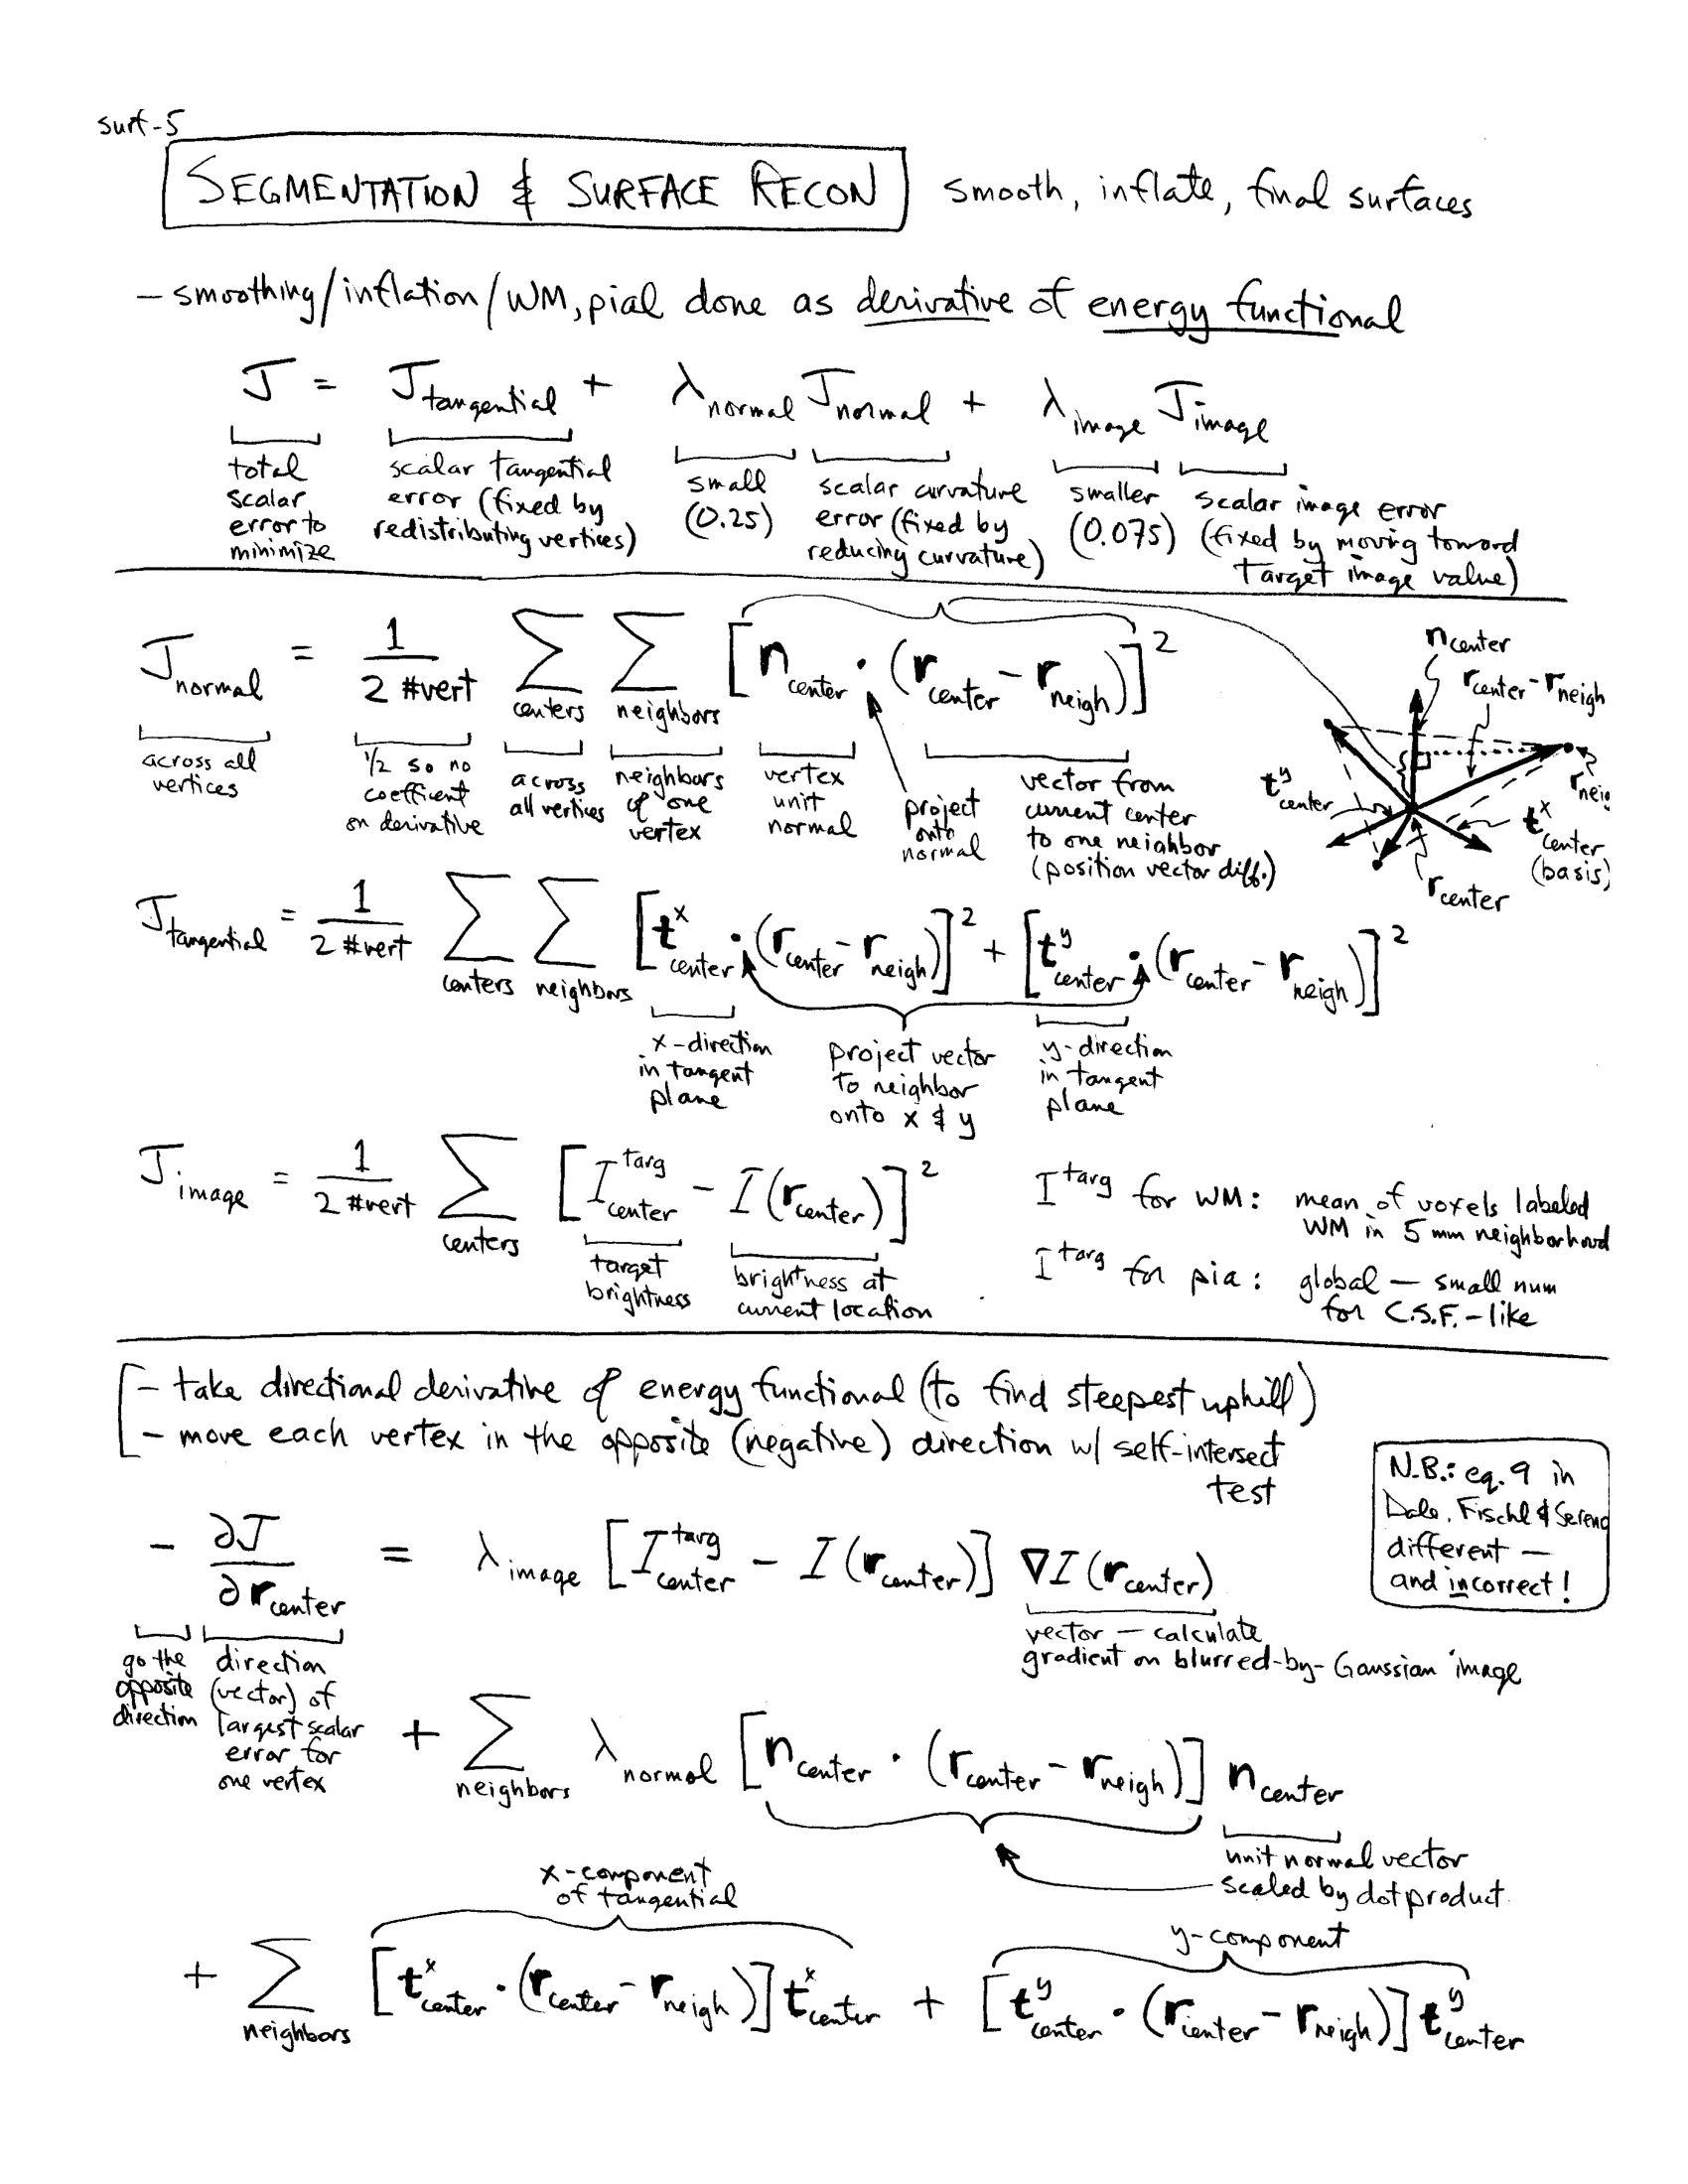 surf-5
SEGMENTATION & SURFACE RECON smooth, inflate, final surfaces
- smoothing/inflation/WM, pial done as derivative of energy functional
J = J_tangential + λ_normal J_normal + λ_image J_image
total scalar error to minimize
scalar tangential error (fixed by redistributing vertices)
small (0.25)
scalar curvature error (fixed by reducing curvature)
smaller (0.075)
scalar image error (fixed by moving toward target image value)
J_normal = 1/(2 #vert) ∑_centers ∑_neighbors [n_center · (r_center - r_neigh)]²
across all vertices
1/2 so no coefficent on derivative
across all vertices
neighbors of one vertex
vertex unit normal
project onto normal
vector from current center to one neighbor (position vector diff.)
n_center
r_center - r_neigh
t^y_center
r_neig
t^x_center (basis)
r_center
J_tangential = 1/(2 #vert) ∑_centers ∑_neighbors [t^x_center · (r_center - r_neigh)]² + [t^y_center · (r_center - r_neigh)]²
x-direction in tangent plane
project vector to neighbor onto x & y
y-direction in tangent plane
J_image = 1/(2 #vert) ∑_centers [I^targ_center - I(r_center)]²
target brightness
brightness at current location
I^targ for WM: mean of voxels labeled WM in 5 mm neighborhood
I^targ for pia: global — small num for C.S.F.-like
- take directional derivative of energy functional (to find steepest uphill)
- move each vertex in the opposite (negative) direction w/ self-intersect test
N.B.: eq. 9 in
Dale, Fischl & Sereno
different —
and incorrect!
- ∂J/∂r_center = λ_image [I^targ_center - I(r_center)] ∇I(r_center)
go the opposite direction
direction (vector) of largest scalar error for one vertex
vector — calculate gradient on blurred-by-Gaussian image
+ ∑_neighbors λ_normal [n_center · (r_center - r_neigh)] n_center
unit normal vector scaled by dot product
x-component of tangential
y-component
+ ∑_neighbors [t^x_center · (r_center - r_neigh)] t^x_center + [t^y_center · (r_center - r_neigh)] t^y_center